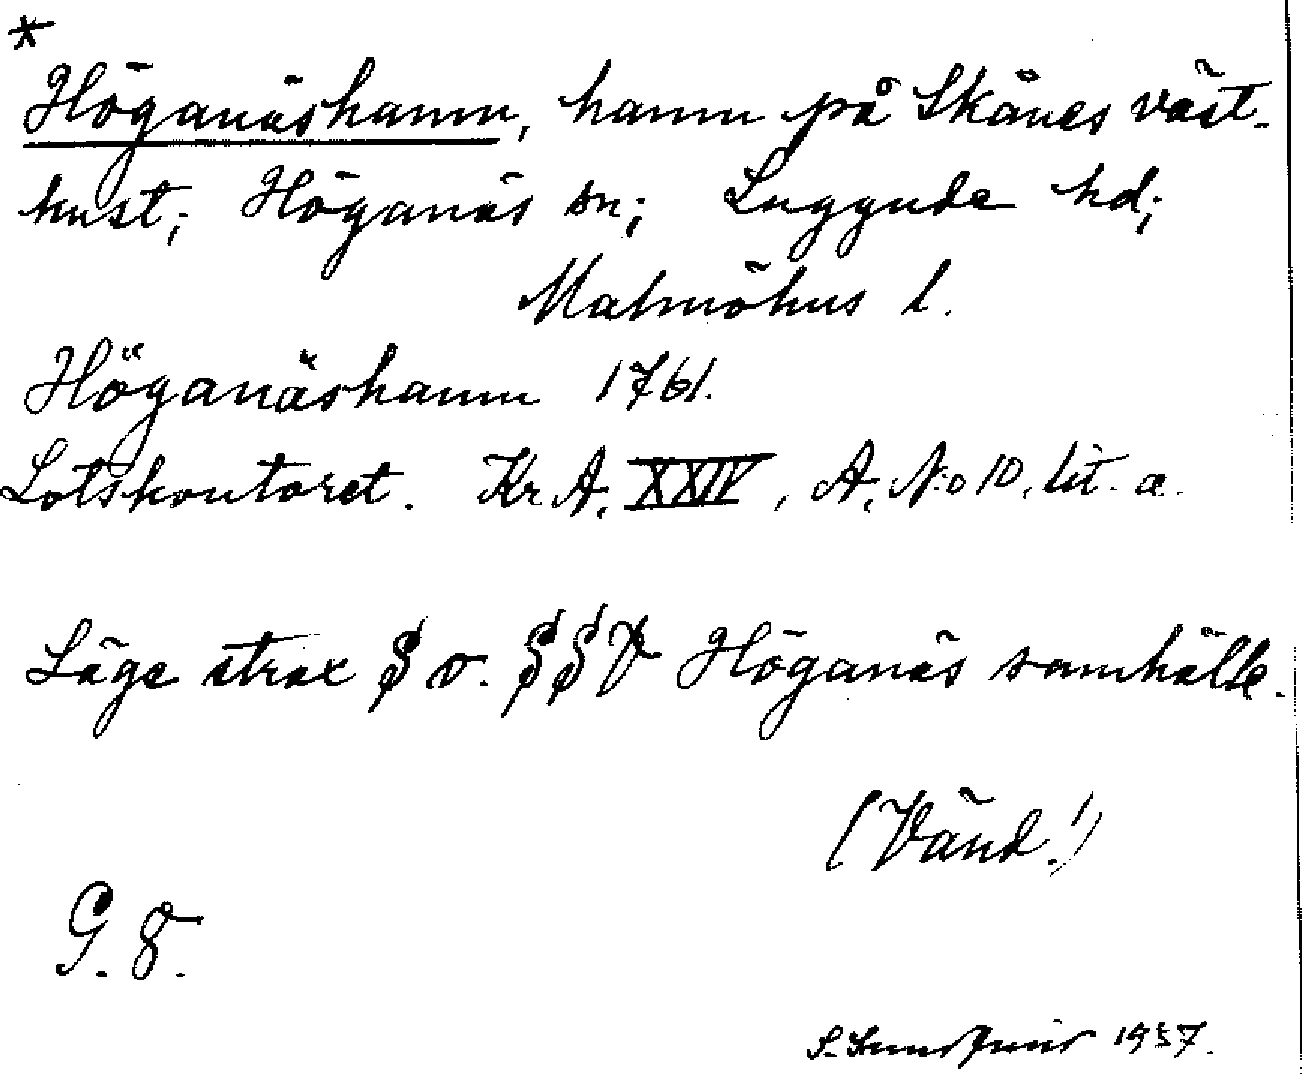 *
Höganäshamn, hamn på Skånes väst-
kust; Höganäs sn; Luggude hd;
Malmöhus l.
Höganäshamn 1761.
Lotskontoret. Kr. A. XXIV, A, No 10, lit. a.
Läge strax S v. SSV Höganäs samhälle.
(Vänd!)
G. 8.
S. 1937.